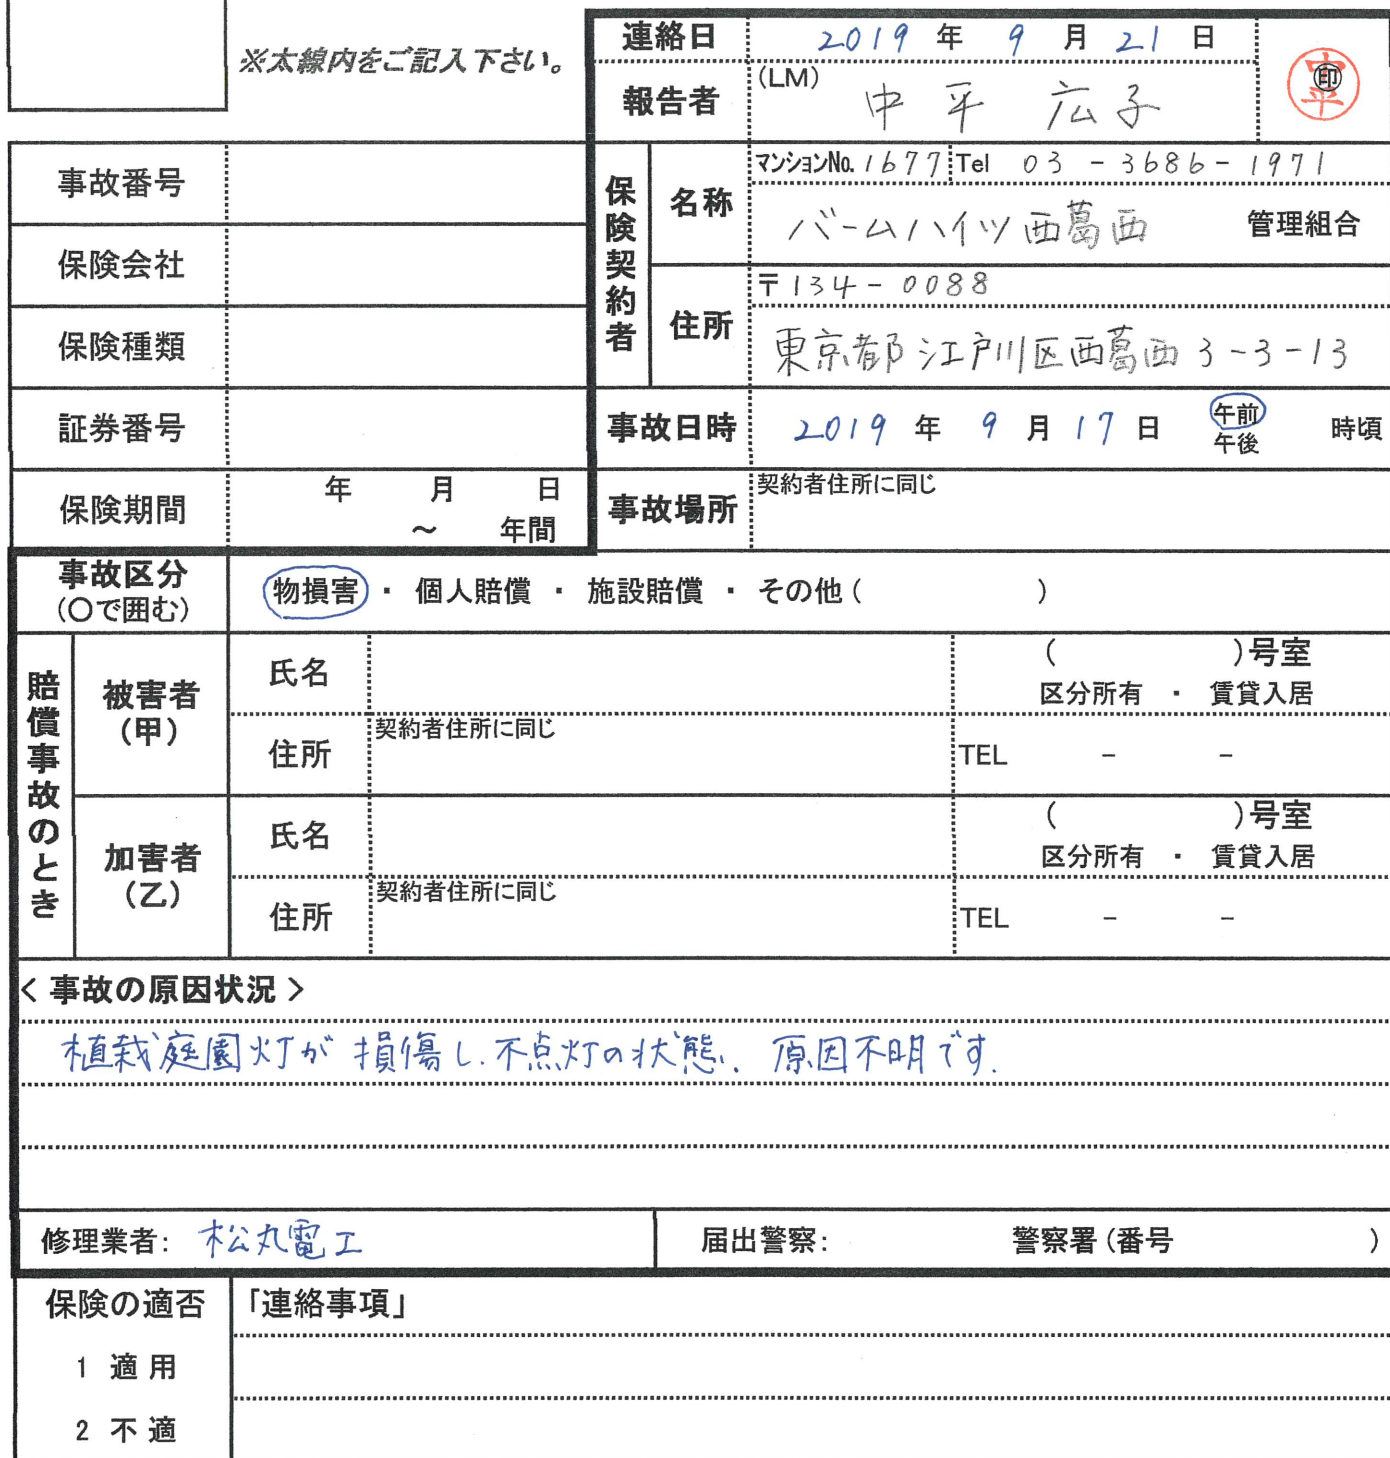 ※太線内をご記入下さい。
連絡日 2019 年 9 月 21 日
報告者 (LM) 中平 広子 ㊞ 中平
事故番号
保険会社
保険種類
証券番号
保険期間 年 月 日
～ 年間
保険契約者
名称 マンションNo. 1677 Tel 03 - 3686 - 1971
バームハイツ西葛西 管理組合
住所 〒134 - 0088
東京都江戸川区西葛西3-3-13
事故日時 2019 年 9 月 17 日 午前 午後 時頃
事故場所 契約者住所に同じ
事故区分
(〇で囲む)
物損害 ・ 個人賠償 ・ 施設賠償 ・ その他 ( )
賠償事故のとき
被害者
(甲)
氏名 ( )号室
区分所有 ・ 賃貸入居
住所 契約者住所に同じ TEL - -
加害者
(乙)
氏名 ( )号室
区分所有 ・ 賃貸入居
住所 契約者住所に同じ TEL - -
< 事故の原因状況 >
植栽庭園灯が損傷し.不点灯の状態、原因不明です.
修理業者: 松丸電工 届出警察: 警察署 (番号 )
保険の適否 「連絡事項」
1 適 用
2 不 適